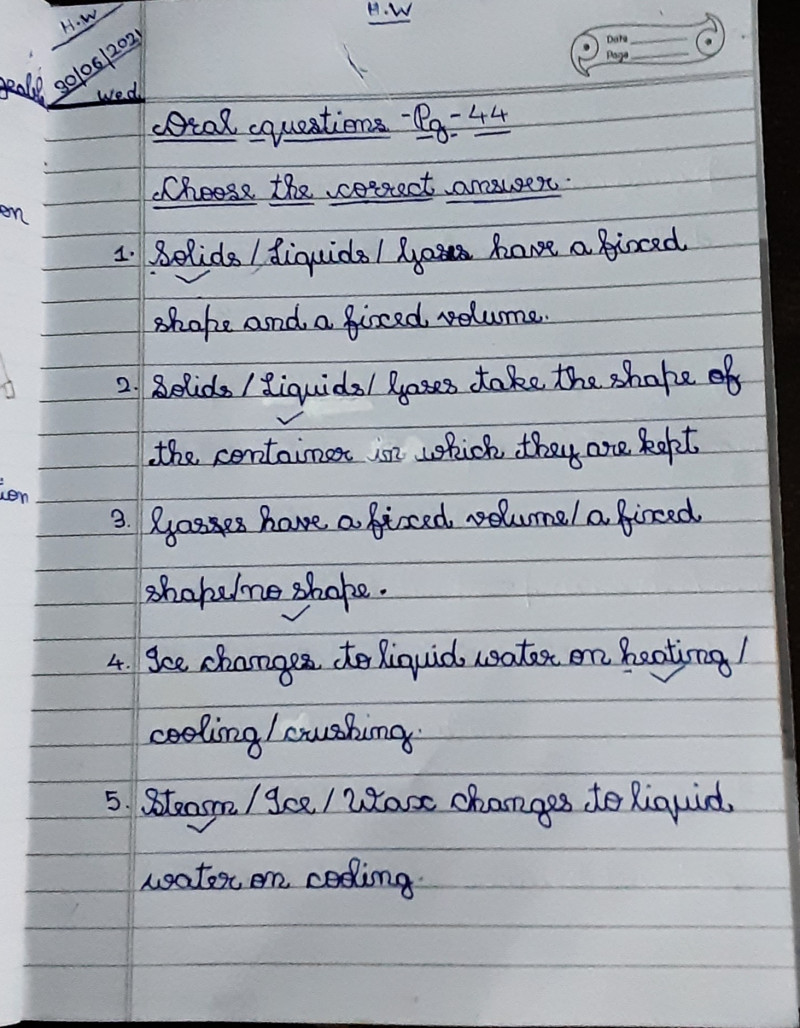 H.W
H.W
30/06/2021
Wed
Date
Page
on
ion
Oral questions - Pg - 44
Choose the correct answer.
1. Solids / Liquids / Gases have a fixed
shape and a fixed volume.
2. Solids / Liquids / Gases take the shape of
the container in which they are kept
3. Gasses have a fixed volume / a fixed
shape/no shape.
4. Ice changes to liquid water on heating /
cooling / crushing.
5. Steam / Ice / Wax changes to liquid
water on cooling.